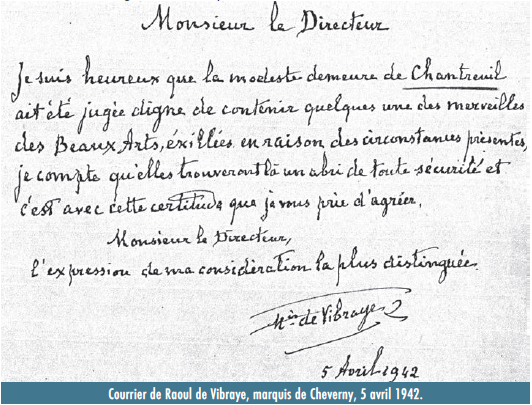 Monsieur le Directeur
Je suis heureux que la modeste demeure de Chantreuil
ait été jugée digne de contenir quelques une des merveilles
des Beaux Arts, éxillées, en raison des circonstances présentes,
je compte qu'elles trouveront là un abri de toute sécurité et
c'est avec cette certitude que je vous prie d'agréer,
Monsieur le Directeur,
l'expression de ma considération la plus distinguée.
Mis de Vibraye
5 Avril 1942
Courrier de Raoul de Vibraye, marquis de Cheverny, 5 avril 1942.